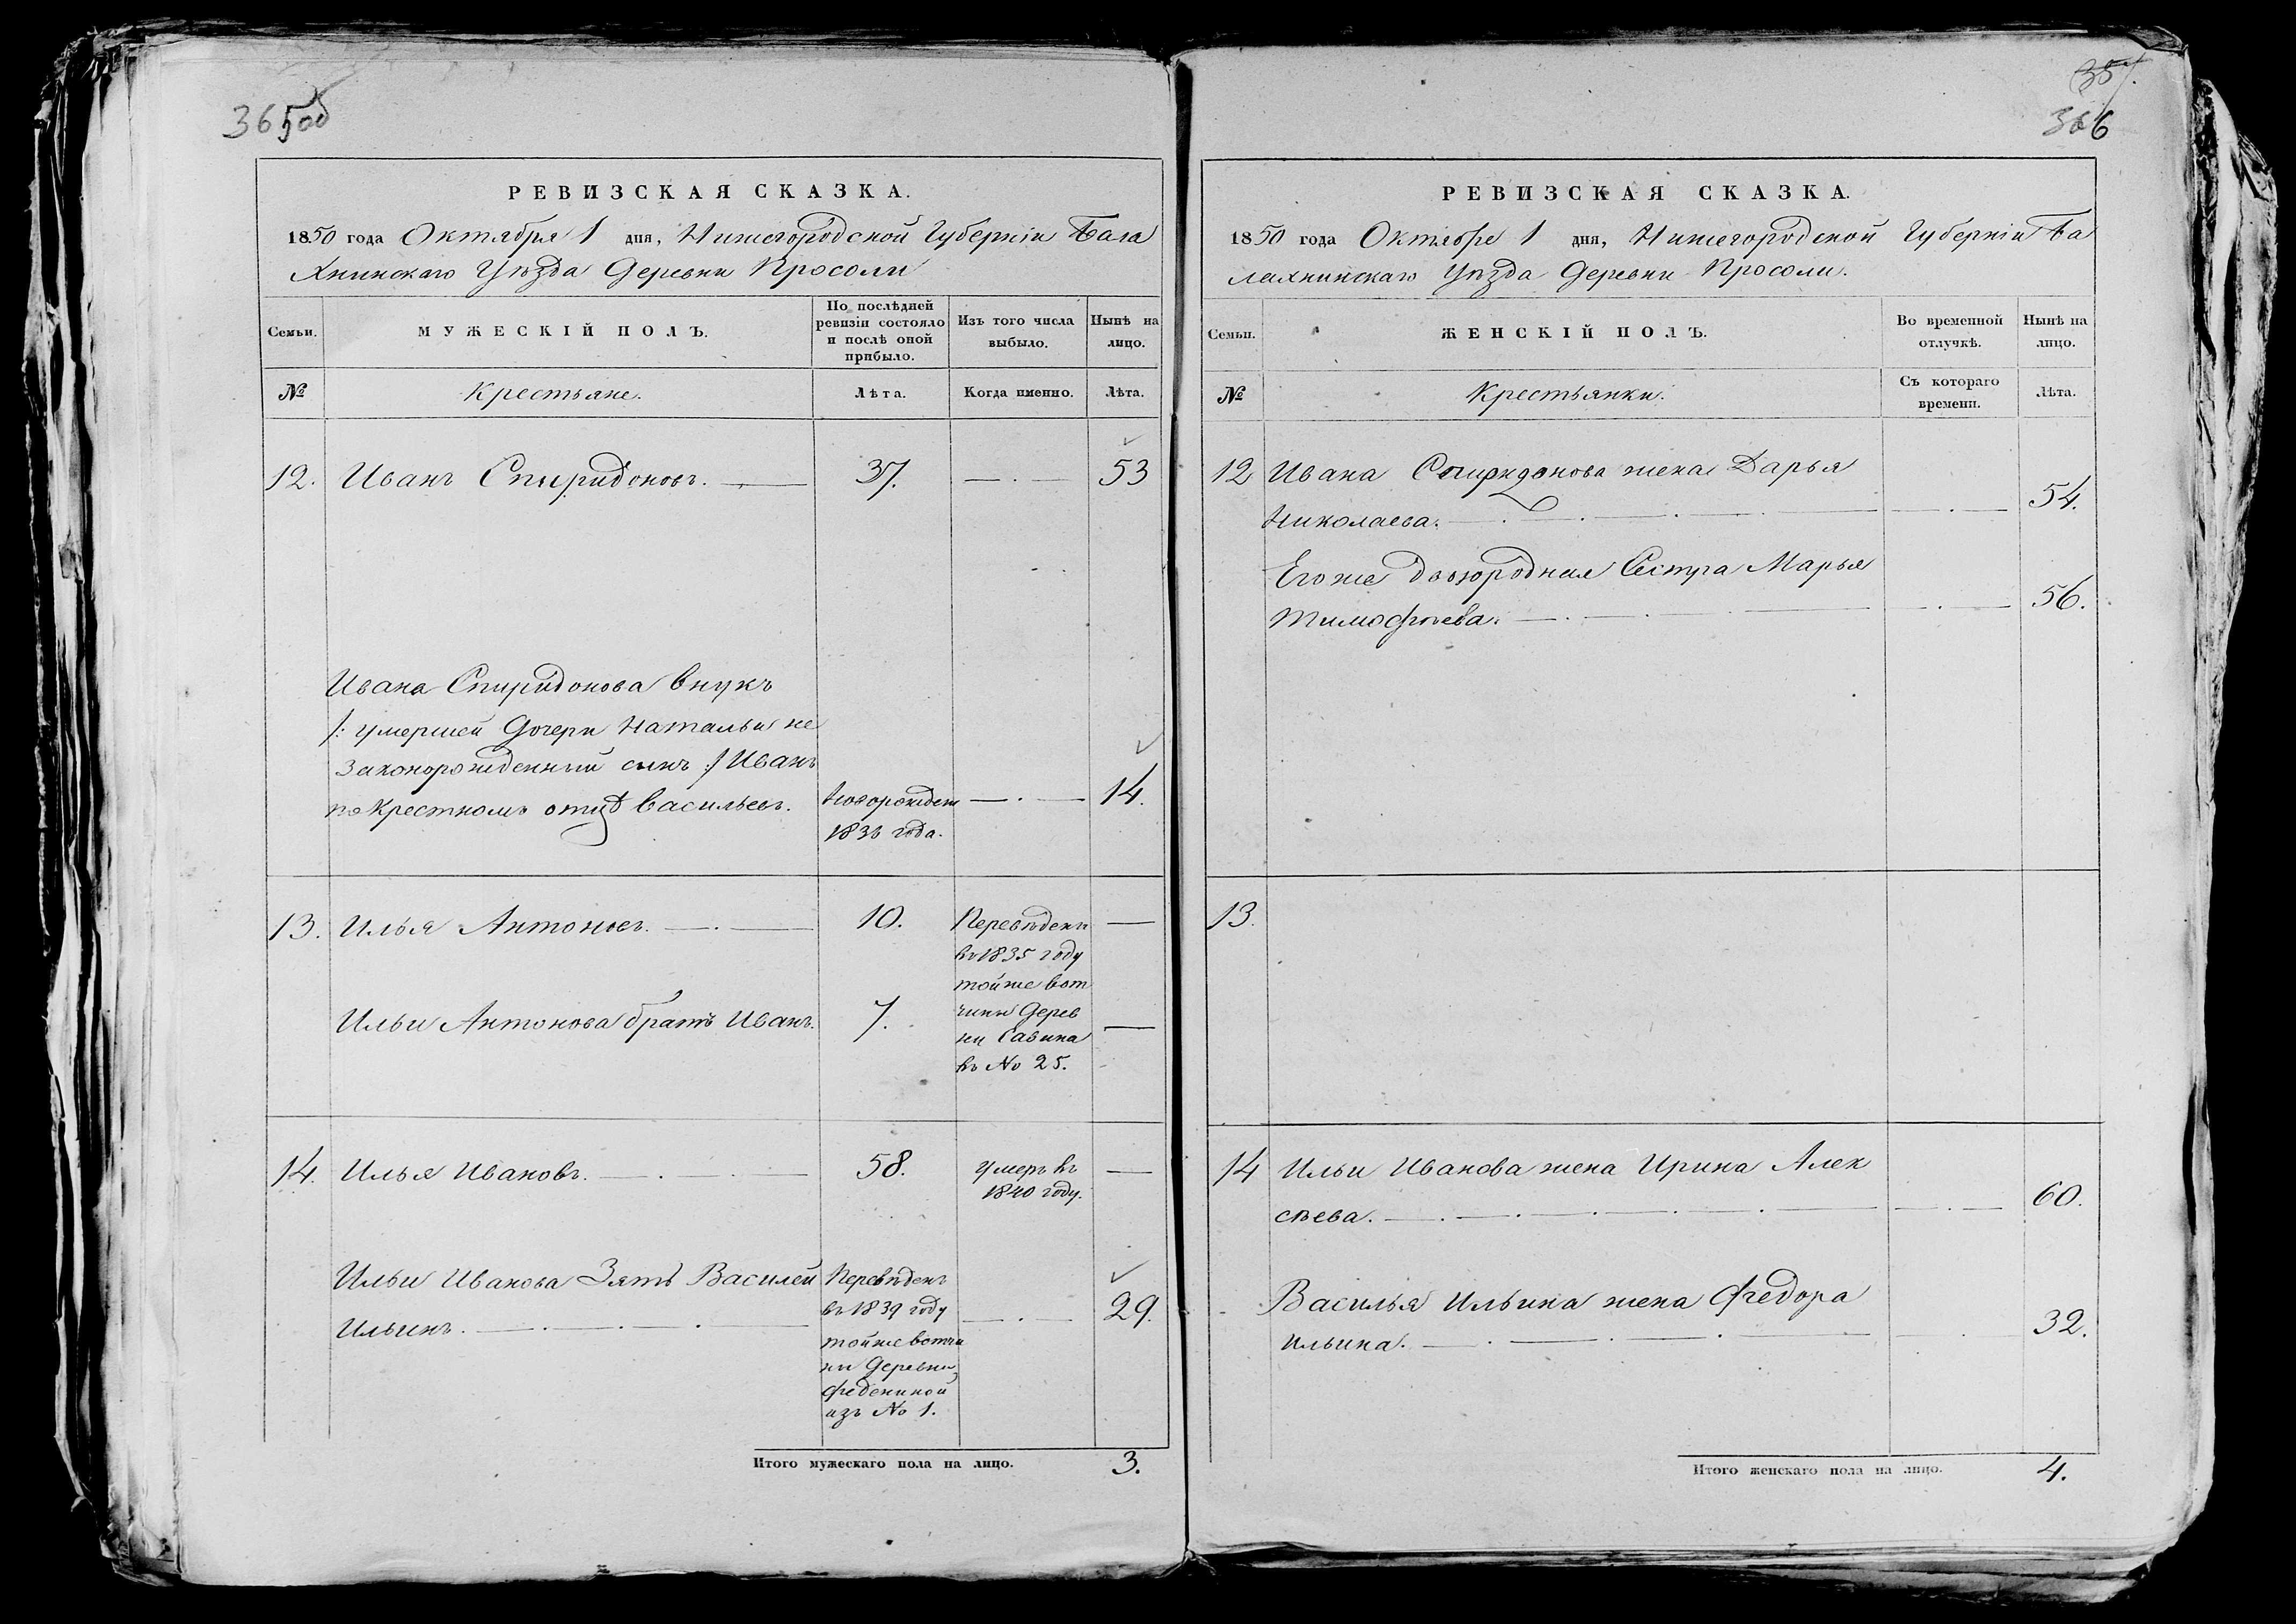 365об
РЕВИЗСКАЯ СКАЗКА.
1850 года Октября 1 дня, Нижегородской Губерніи Бала
хнинскаго Уѣзда Деревни Просоли
Семьи.
МУЖЕСКІЙ ПОЛЪ.
По послѣдней ревизіи состояло и послѣ оной прибыло.
Изъ того числа выбыло.
Нынѣ на лицо.
№
Крестьяне.
Лѣта.
Когда именно.
Лѣта.
12. Иванъ Спиридоновъ. 37. 53
Ивана Спиридонова внукъ
/: умершей Дочери Натальи не
законорожденный сынъ :/ Иванъ
по Крестномъ отцѣ Васильевъ. новорожден 14.
1836 года.
13. Илья Антоновъ. 10. Перевѣденъ
въ 1835 году
тойже вот
Ильи Антонова братъ Иванъ. 7. чины Дерев
ни Савина
въ No 25.
14. Илья Ивановъ. 58. умеръ въ
1840 году.
Ильи Иванова Зять Василей Перевѣденъ
Ильинъ. въ 1839 году 29.
тойже вотчи
ны Деревни
Федениной
изъ No 1.
Итого мужескаго пола на лицо. 3.
357.
366
РЕВИЗСКАЯ СКАЗКА.
1850 года Октября 1 дня, Нижегородской Губерніи Ба
лахнинскаго Уѣзда Деревни Просоли.
Семьи.
ЖЕНСКІЙ ПОЛЪ.
Во временной отлучкѣ.
Нынѣ на лицо.
№
Крестьянки.
Съ котораго времени.
Лѣта.
12 Ивана Спиридонова жена Дарья
Николаева. 54.
Егоже двоюродная Сестра Марья
Тимофѣева. 56.
13.
14 Ильи Иванова жена Ирина Алек
сѣева. 60.
Василья Ильина жена Федора
Ильина. 32.
Итого женскаго пола на лицо. 4.